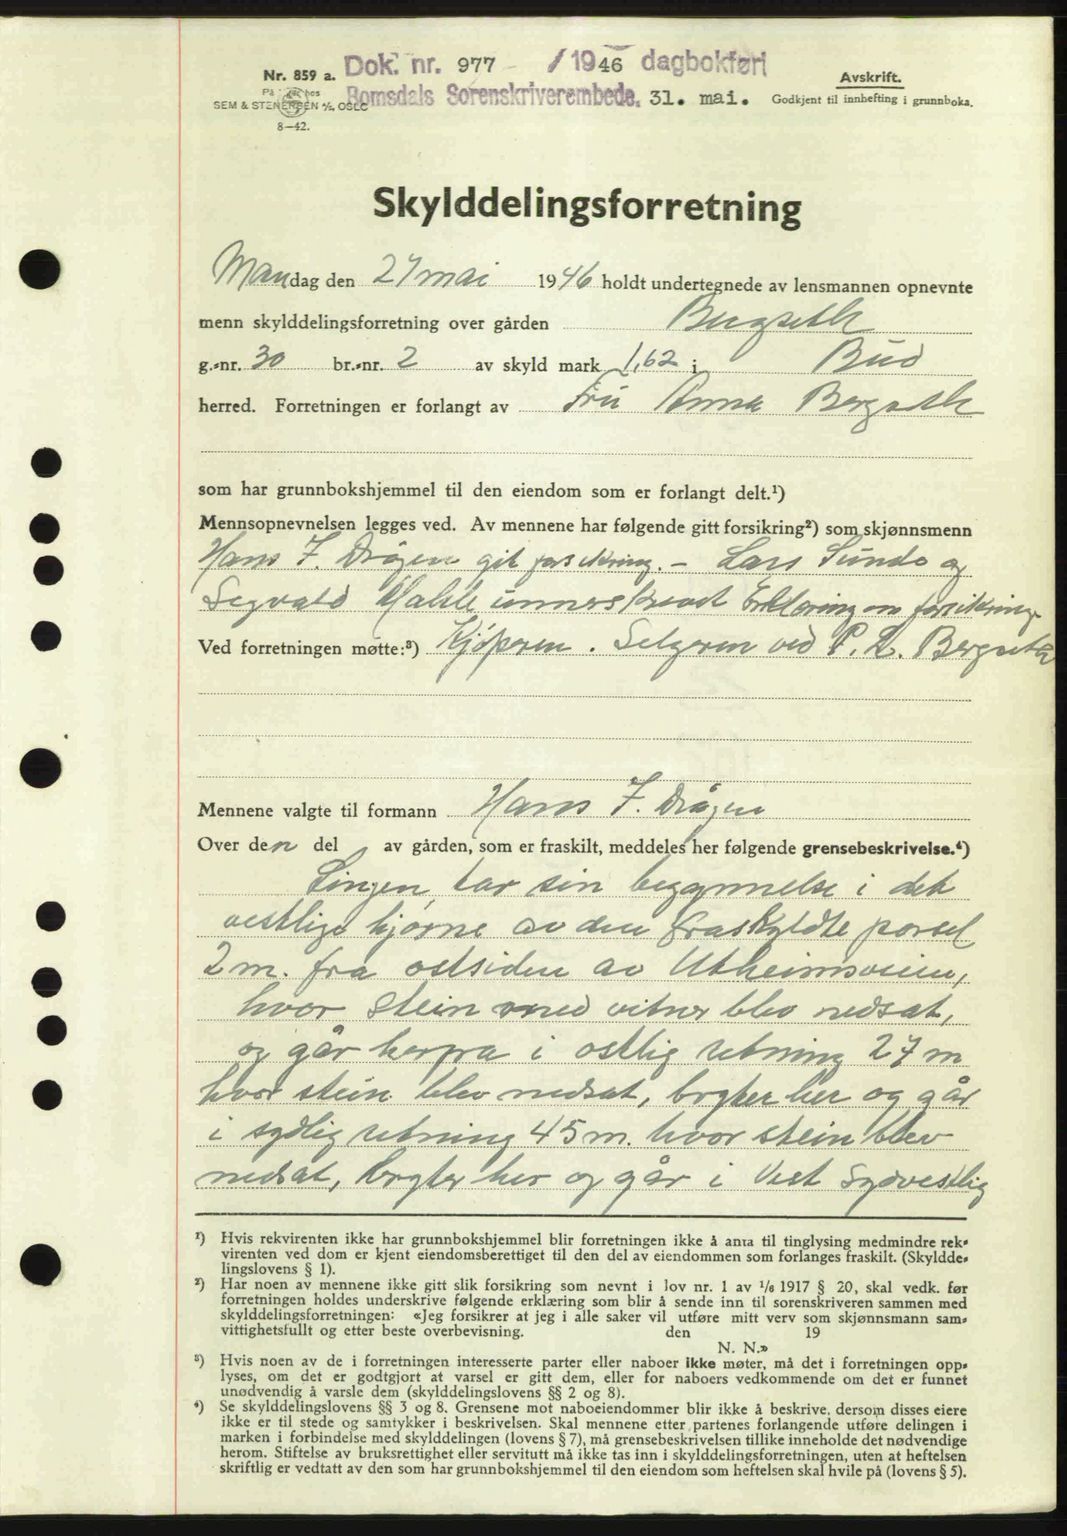 Nr. 859 a.
Dok. nr. 977 / 1946 dagbokført
Avskrift.
SEM & STENERSEN A/S, OSLO
Romsdals Sorenskriverembede, 31. mai.
Godkjent til innhefting i grunnboka.
8—42.
Skylddelingsforretning
Mandag den 27 mai 1946 holdt undertegnede av lensmannen opnevnte
menn skylddelingsforretning over gården Bergseth
g.-nr. 30 br.-nr. 2 av skyld mark 1,62 i Bud
herred. Forretningen er forlangt av Fru Anna Bergseth
som har grunnbokshjemmel til den eiendom som er forlangt delt.¹)
Mennsopnevnelsen legges ved. Av mennene har følgende gitt forsikring²) som skjønnsmenn
Hans J. Drågen git forsikring. - Lars Sunde og
Sigvald Male unnerskrevet Erklæring om forsikring.
Ved forretningen møtte:³) Kjøperen. Selgeren ved P. L. Bergseth
Mennene valgte til formann Hans J. Drågen
Over den del av gården, som er fraskilt, meddeles her følgende grensebeskrivelse.⁴)
Linjen tar sin begynnelse i det
vestlige hjørne av den fraskyldte parsel
2 m. fra østsiden av Utheimsveien,
hvor stein med vitner blev nedsat,
og går herfra i østlig retning 27 m
hvor stein blev nedsat, bryter her og går
i sydlig retning 45 m. hvor stein blev
nedsat, bryter her og går i Vest Sydvestlig
¹) Hvis rekvirenten ikke har grunnbokshjemmel blir forretningen ikke å anta til tinglysing medmindre rek-
virenten ved dom er kjent eiendomsberettiget til den del av eiendommen som forlanges fraskilt. (Skyldde-
lingslovens § 1).
²) Har noen av mennene ikke gitt slik forsikring som nevnt i lov nr. 1 av 1/6 1917 § 20, skal vedk. før
forretningen holdes underskrive følgende erklæring som blir å sende inn til sorenskriveren sammen med
skylddelingsforretningen: «Jeg forsikrer at jeg i alle saker vil utføre mitt verv som skjønnsmann sam-
vittighetsfullt og etter beste overbevisning. den 19
N. N.»
³) Hvis noen av de i forretningen interesserte parter eller naboer ikke møter, må det i forretningen opp-
lyses, om det er godtgjort at varsel er gitt dem, eller for naboers vedkommende om det er funnet
unødvendig å varsle dem (skylddelingslovens §§ 2 og 8).
⁴) Se skylddelingslovens §§ 3 og 8. Grensene mot naboeiendommer blir ikke å beskrive, dersom disses eiere
ikke er til stede og samtykker i beskrivelsen. Skal mennene etter partenes forlangende utføre delingen i
marken i forbindelse med skylddelingen (lovens § 7), må grensebeskrivelsen tillike inneholde det nødvendige
herom. Stiftelse av bruksrettighet eller servitutt må ikke tas inn i skylddelingsforretningen, uten at heftelsen
skriftlig er vedtatt av den som har grunnbokshjemmel til den eiendom som heftelsen skal hvile på (lovens § 5).